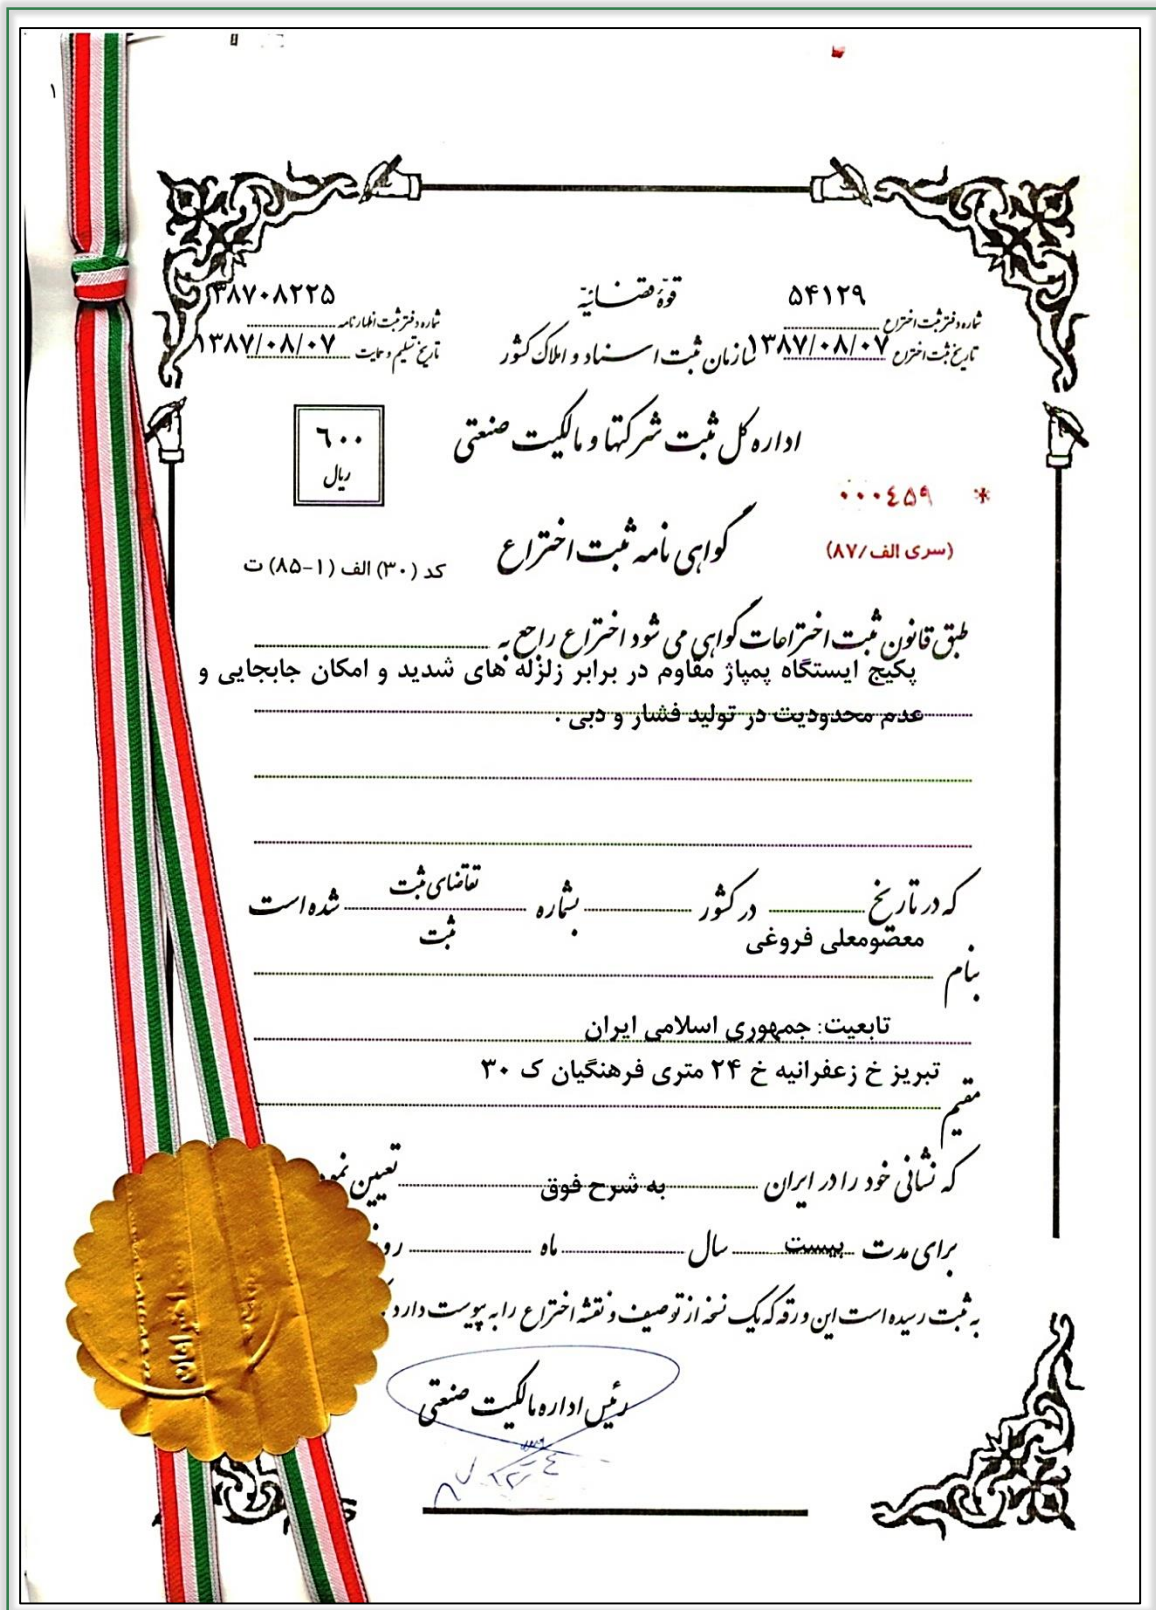 ۱
۵۴۱۲۹
قوّه قضـائیّه
۳۸۷۰۸۲۲۵
شماره دفتر ثبت اختراع
شماره دفتر ثبت اظهارنامه
تاریخ ثبت اختراع ۱۳۸۷/۰۸/۰۷
سازمان ثبت اسـناد و املاک کشور
تاریخ تسلیم و حمایت ۱۳۸۷/۰۸/۰۷
اداره کل ثبت شرکتها و مالکیت صنعتی
۶۰۰
ریال
* ۰۰۰۴۵۹
(سری الف/۸۷)
گواهی نامه ثبت اختراع
کد (۳۰) الف (۱-۸۵) ت
طبق قانون ثبت اختراعات گواهی می شود اختراع راجع به
پکیج ایستگاه پمپاژ مقاوم در برابر زلزله های شدید و امکان جابجایی و
عدم محدودیت در تولید فشار و دبی .
که در تاریخ در کشور بشماره تقاضای ثبت شده است
ثبت
معصومعلی فروغی
بنام
تابعیت: جمهوری اسلامی ایران
تبریز خ زعفرانیه خ ۲۴ متری فرهنگیان ک ۳۰
مقیم
که نشانی خود را در ایران به شرح فوق تعیین
برای مدت بیست سال ماه
به ثبت رسیده است این ورقه که یک نسخه از توصیف و نقشه اختراع را به پیوست دارد
رئیس اداره مالکیت صنعتی